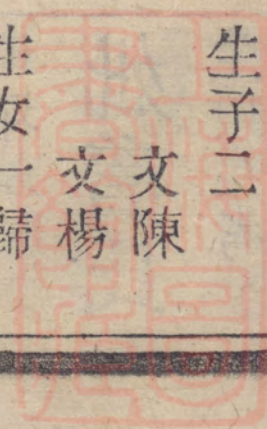 生子二
文陳
文楊
生女一歸